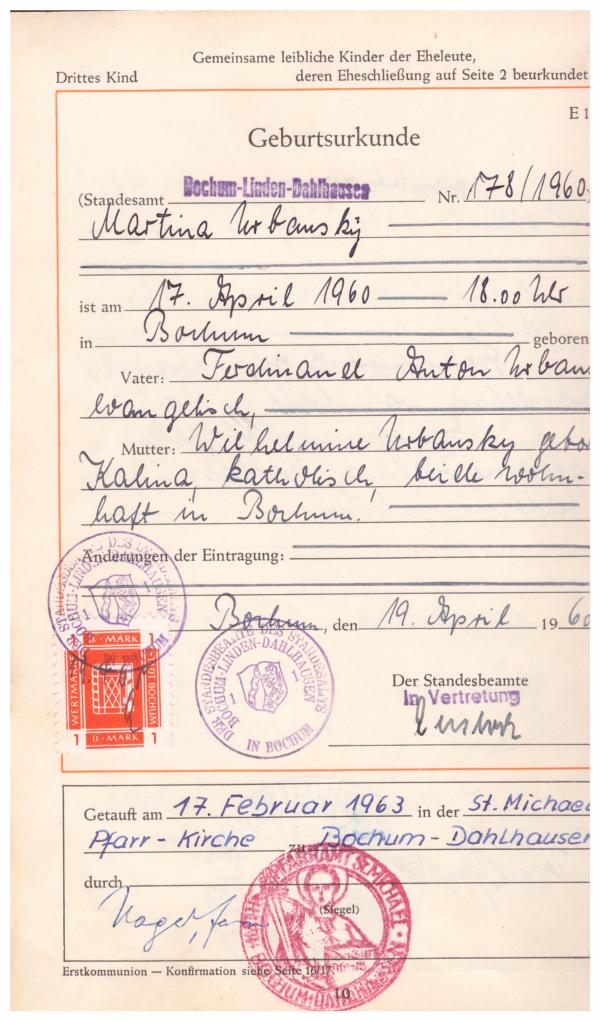 Gemeinsame leibliche Kinder der Eheleute,
Drittes Kind deren Eheschließung auf Seite 2 beurkundet
E 1
Geburtsurkunde
(Standesamt Bochum-Linden-Dahlhausen Nr. 178/1960
Martina Urbansky
ist am 17. April 1960 18.00 Uhr
in Bochum geboren
Vater: Ferdinand Anton Urbans
evangelisch,
Mutter: Wilhelmine Urbansky gebo
Kalina, katholisch, beide wohn-
haft in Bochum.
Änderungen der Eintragung:
Bochum, den 19. April 1960
DER STANDESBEAMTE DES STANDESAMTS
BOCHUM-LINDEN-DAHLHAUSEN
IN BOCHUM
1 D.-MARK 1
WERTMARKE
STADT BOCHUM
1 D.-MARK 1
DER STANDESBEAMTE DES STANDESAMTS
BOCHUM-LINDEN-DAHLHAUSEN
1 1
IN BOCHUM
Der Standesbeamte
In Vertretung
Getauft am 17. Februar 1963 in der St. Michael
Pfarr-Kirche zu Bochum-Dahlhausen
durch
(Siegel)
KATH. PFARRAMT ST. MICHAEL
BOCHUM-DAHLHAUSEN
Erstkommunion — Konfirmation siehe Seite 16/17.
10